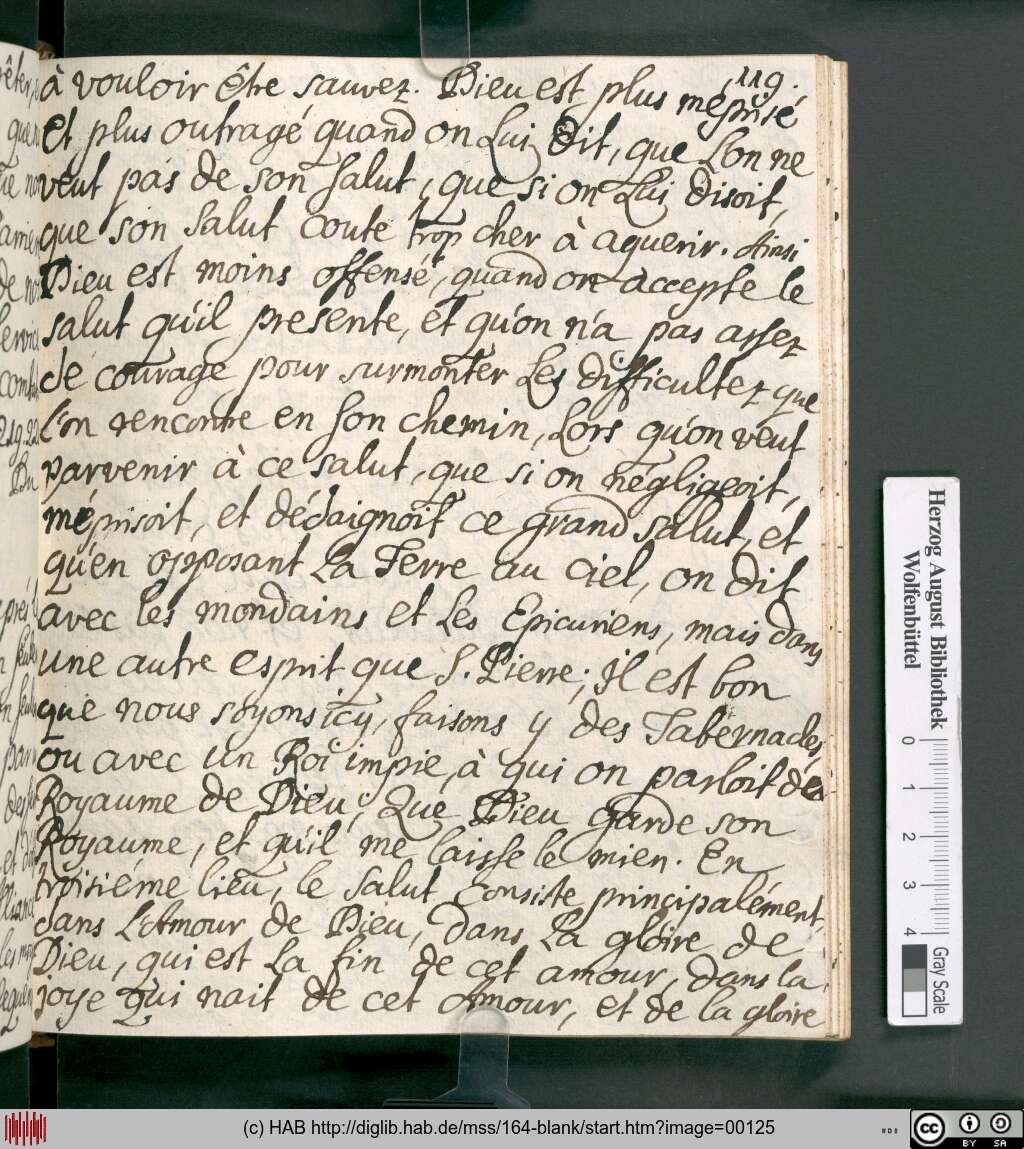 119.
à vouloir être sauvez. Dieu est plus méprisé
et plus outragé quand on Lui Dit, que L'on ne
veut pas de son salut, que si on Lui disoit,
que son salut coute trop cher à aquerir. Ainsi
Dieu est moins offensé, quand on accepte le
salut qu'il presente, et qu'on n'a pas assez
de courage pour surmonter Les difficultez que
l'on rencontre en son chemin, Lors qu'on veut
parvenir à ce salut, que si on négligeoit,
méprisoit, et dédaignoit ce grand salut, et
qu'en opposant La Terre au ciel, on dit
avec les mondains et Les Epicuriens, mais dans
une autre esprit que S. Pierre; Il est bon
que nous soyons icy, faisons y des Tabernacles,
ou avec un Roi impie, à qui on parloit du
Royaume de Dieu; Que Dieu garde son
Royaume, et qu'il me laisse le mien. En
troisiéme lieu, le salut consiste principalément,
dans L'Amour de Dieu, dans La gloire de
Dieu, qui est La fin de cet amour, dans la
joye qui nait de cet Amour, et de la gloire
Herzog August Bibliothek
Wolfenbüttel
0 1 2 3 4
Gray Scale
(c) HAB http://diglib.hab.de/mss/164-blank/start.htm?image=00125
cc BY SA